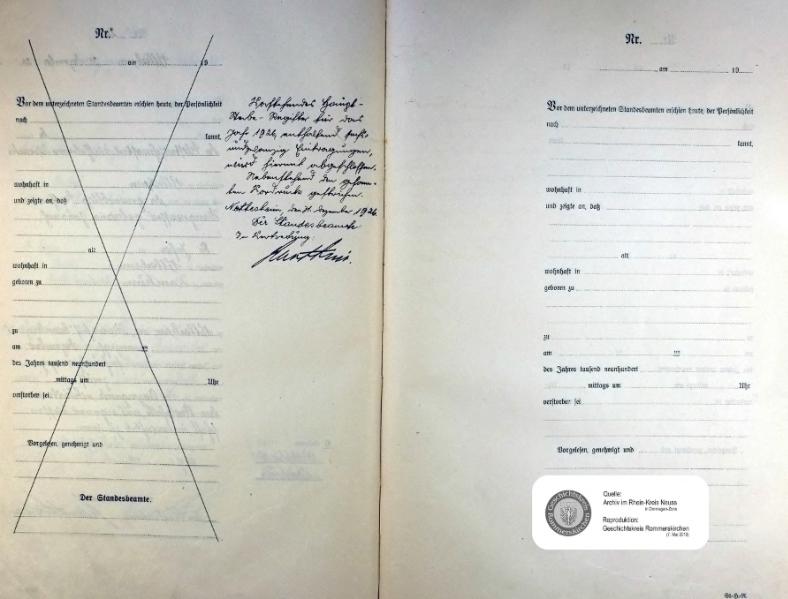 Nr.
am 19
Vor dem unterzeichneten Standesbeamten erschien heute, der Persönlichkeit
nach
kannt,
wohnhaft in
und zeigte an, daß
alt
wohnhaft in
geboren zu
zu
am ten
des Jahres tausend neunhundert
mittags um Uhr
verstorben sei.
Vorgelesen, genehmigt und
Der Standesbeamte.
Vorstehendes Haupt-
Sterbe-Register für das
Jahr 1926, enthaltend sechs-
undzwanzig Eintragungen,
wird hiermit abgeschlossen.
Nebenstehend den gesam-
ten Vordruck gestrichen.
Nettesheim, den 31. Dezember 1926.
Der Standesbeamte
In Vertretung:
Nr.
am 19
Vor dem unterzeichneten Standesbeamten erschien heute, der Persönlichkeit
nach
kannt,
wohnhaft in
und zeigte an, daß
alt
wohnhaft in
geboren zu
zu
am ten
des Jahres tausend neunhundert
mittags um Uhr
verstorben sei.
Vorgelesen, genehmigt und
Geschichtskreis
Rommerskirchen
Quelle:
Archiv im Rhein-Kreis Neuss
in Dormagen-Zons
Reproduktion:
Geschichtskreis Rommerskirchen